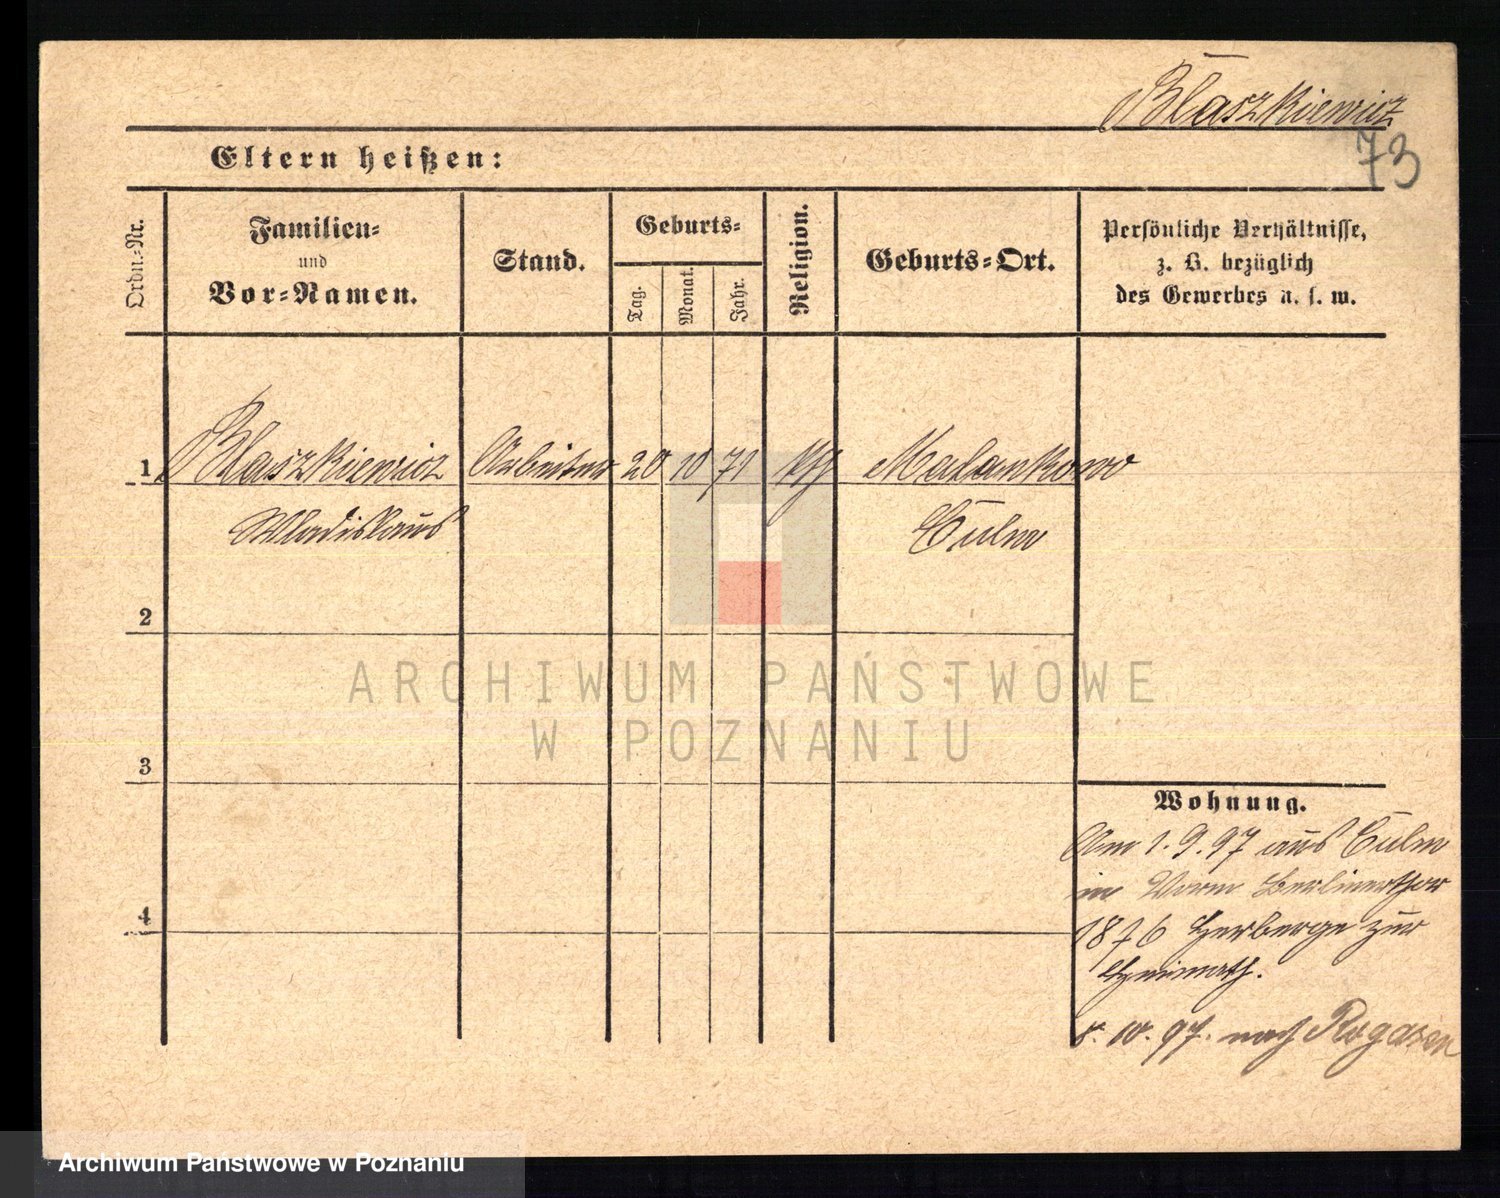 Blaszkiewicz
73
Eltern heißen:
Ordn.-Nr.
Familien-
und
Vor-Namen.
Stand.
Geburts-
Tag.
Monat.
Jahr.
Religion.
Geburts-Ort.
Persönliche Verhältnisse,
z. B. bezüglich
des Gewerbes u. s. w.
1 Blaszkiewicz Arbeiter 20 10 71 Malankowo
Wladislaus Culm
2
ARCHIWUM PAŃSTWOWE
W POZNANIU
3
Wohnung.
Am 1.9.97 aus Culm
Berlinerthor
4
1876 Herberge zur
Heimath.
8.10.97. nach Rogasen
Archiwum Państwowe w Poznaniu